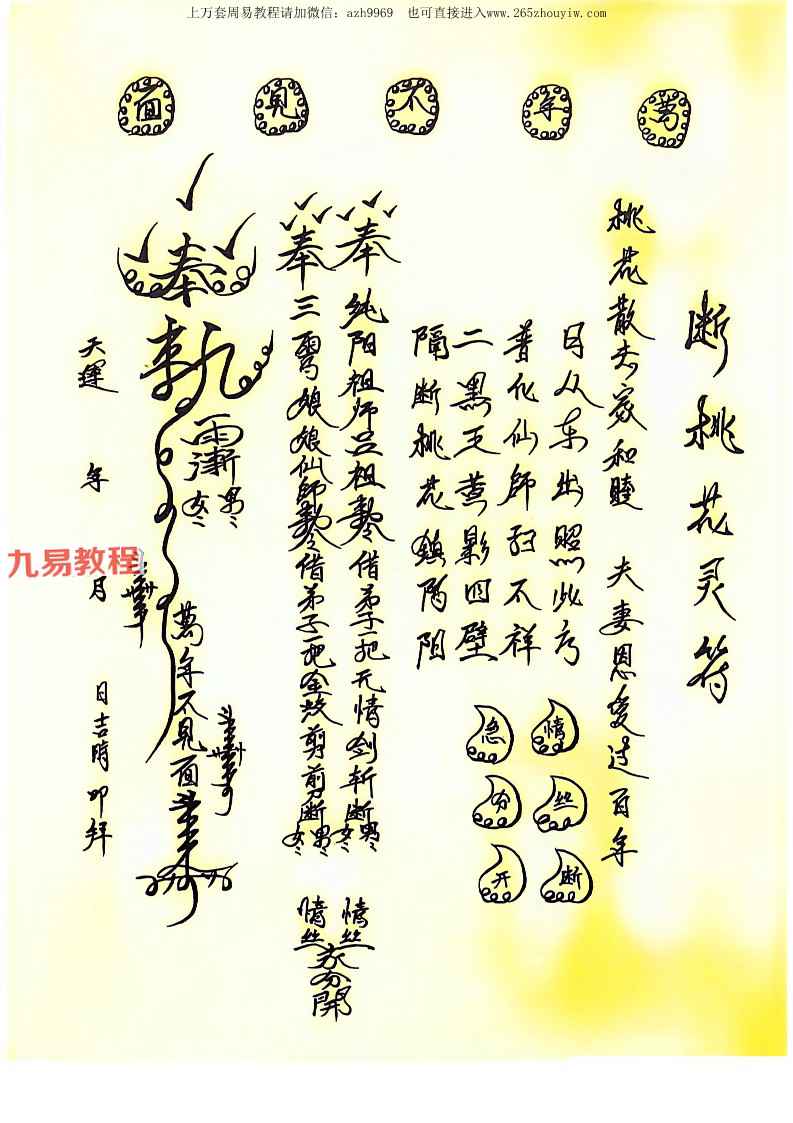 上万套周易教程请加微信：azh9969　也可直接进入www.265zhouyiw.com
萬年不見面
断桃花灵符
桃花散去家和睦　夫妻恩爱过百年
日从东出照此方
普化仙師 不祥
二黑王 影四壁
隔断桃花鎮 阻
情丝断
急分开
奉 纯阳祖师吕祖 借弟子一把无情剑斩断男女 情丝
奉 三 娘娘仙師 借弟子一把金 剪剪断男女 情丝 分開
奉
男 女
萬年不見面
天運 年 月 日吉時叩拜
九易教程